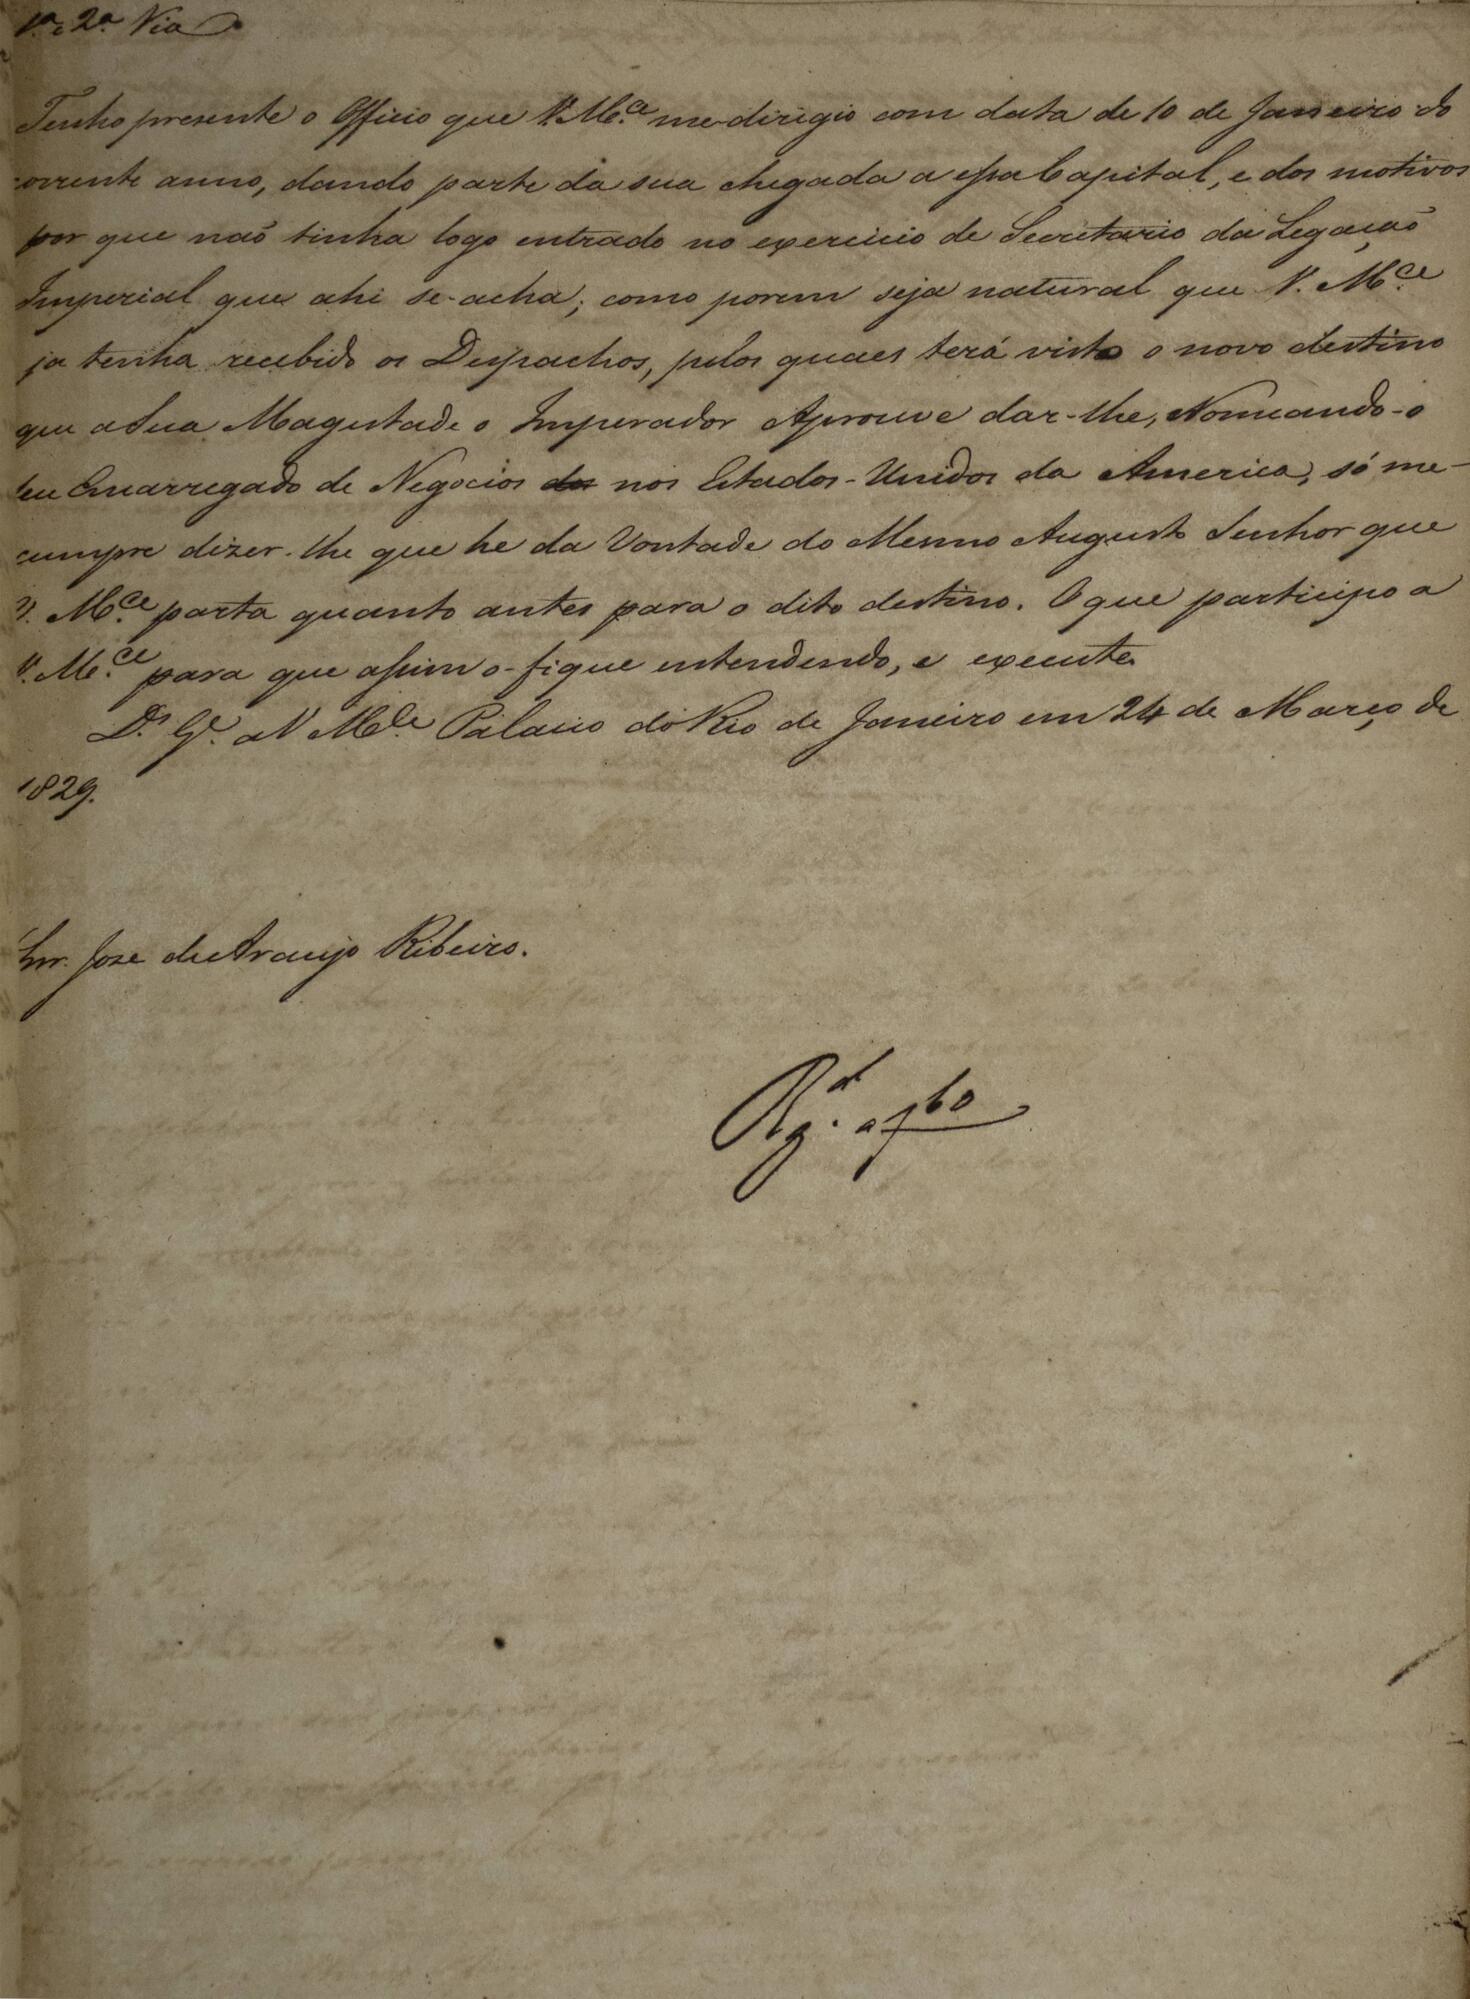 1.ª e 2.ª Via
Tenho presente o Officio que V. M.ce me-dirigio com data de 10 de Janeiro do
corrente anno, dando parte da sua chegada a essa Capital, e dos motivos
por que naõ tinha logo entrado no exercicio de Secretario da Legaçaõ
Imperial que ahi se-acha; como porem seja natural que V. M.ce
ja tenha recebido os Despachos, pelos quaes terá visto o novo destino
que a Sua Magestade o Imperador Aprouve dar-lhe, Nomeando-o
Seu Encarregado de Negocios dos nos Estados-Unidos da America, só me-
cumpre dizer-lhe que he da Vontade do Mesmo Augusto Senhor que
V. M.ce parta quanto antes para o dito destino. O que participo a
V. M.ce para que assim o-fique entendendo, e execute.
D.s G.e a V M.ce Palacio do Rio de Janeiro em 24 de Março de
1829.
Snr. Jose de Araujo Ribeiro.